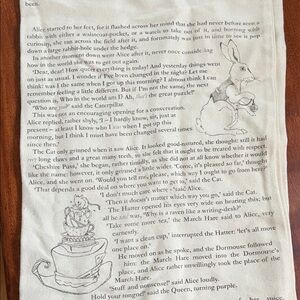 been.
Alice started to her feet, for it flashed across her mind that she had never before seen a
rabbit with either a waistcoat-pocket, or a watch to take out of it, and burning with
curiosity, she ran across the field after it, and fortunately was just in time to see it pop
down a large rabbit-hole under the hedge.
In another moment down went Alice after it, never once considering
how in the world she was to get out again.
'Dear, dear! How queer everything is today! And yesterday things went
on just as usual. I wonder if I've been changed in the night? Let me
think: was I the same when I got up this morning? I almost think I can
remember feeling a little different. But if I'm not the same, the next
question is, Who in the world am I? Ah, that's the great puzzle!'
'Who are you?' said the Caterpillar.
This was not an encouraging opening for a conversation.
Alice replied, rather shyly, 'I – I hardly know, sir, just at
present – at least I know who I was when I got up this
morning, but I think I must have been changed several times
since then.'
The Cat only grinned when it saw Alice. It looked good-natured, she thought: still it had
very long claws and a great many teeth, so she felt that it ought to be treated with respect.
'Cheshire Puss,' she began, rather timidly, as she did not at all know whether it would
like the name: however, it only grinned a little wider. 'Come, it's pleased so far,' thought
Alice, and she went on. 'Would you tell me, please, which way I ought to go from here?'
'That depends a good deal on where you want to get to,' said the Cat.
'I don't much care where–' said Alice.
'Then it doesn't matter which way you go,' said the Cat.
The Hatter opened his eyes very wide on hearing this; but
all he said was, 'Why is a raven like a writing-desk?'
'Take some more tea,' the March Hare said to Alice, very
earnestly.
'I want a clean cup,' interrupted the Hatter: 'let's all move
one place on.'
He moved on as he spoke, and the Dormouse followed
him: the March Hare moved into the Dormouse's
place, and Alice rather unwillingly took the place of
the March Hare.
'Stuff and nonsense!' said Alice loudly.
Hold your tongue!' said the Queen, turning purple.